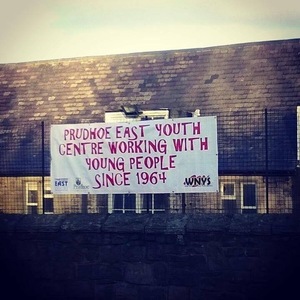 PRUDHOE EAST YOUTH
CENTRE WORKING WITH
YOUNG PEOPLE
SINCE 1964
EAST
WNYS